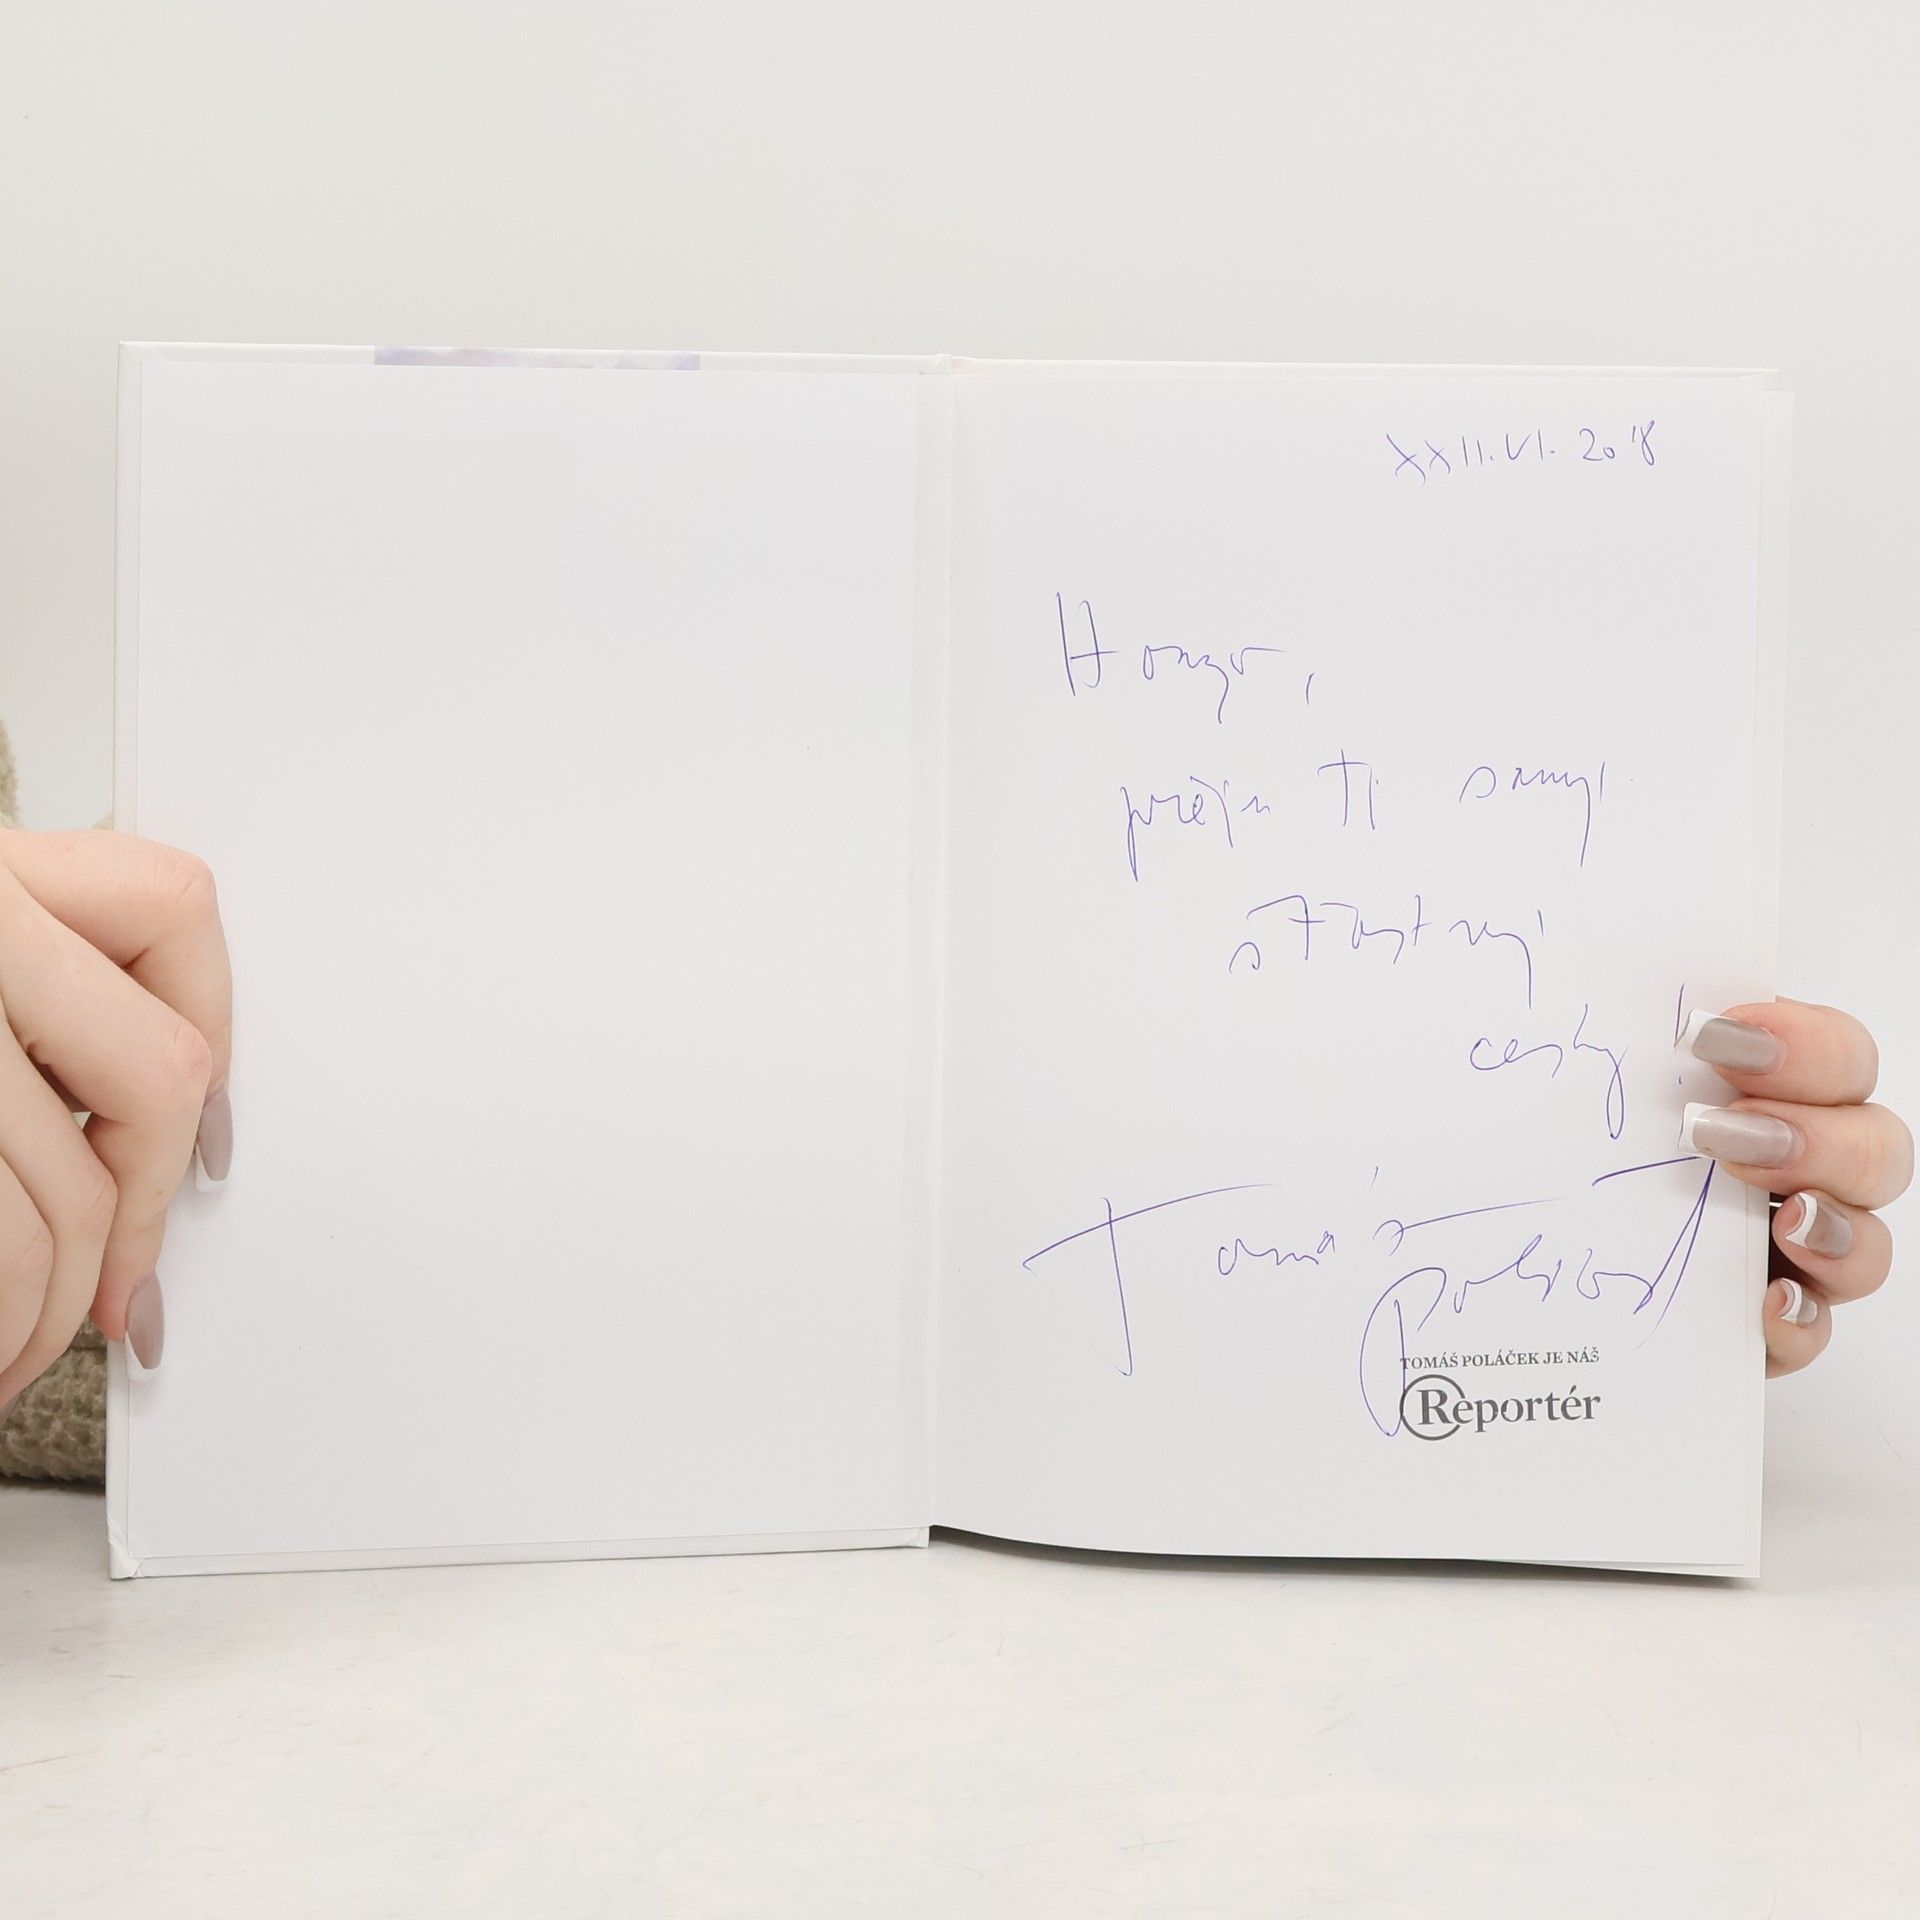 XXII.VI. 2018
Honzo,
přeju Ti samý
šťastný
cesty!
Tomáš
Poláček
TOMÁŠ POLÁČEK JE NÁŠ
Reportér